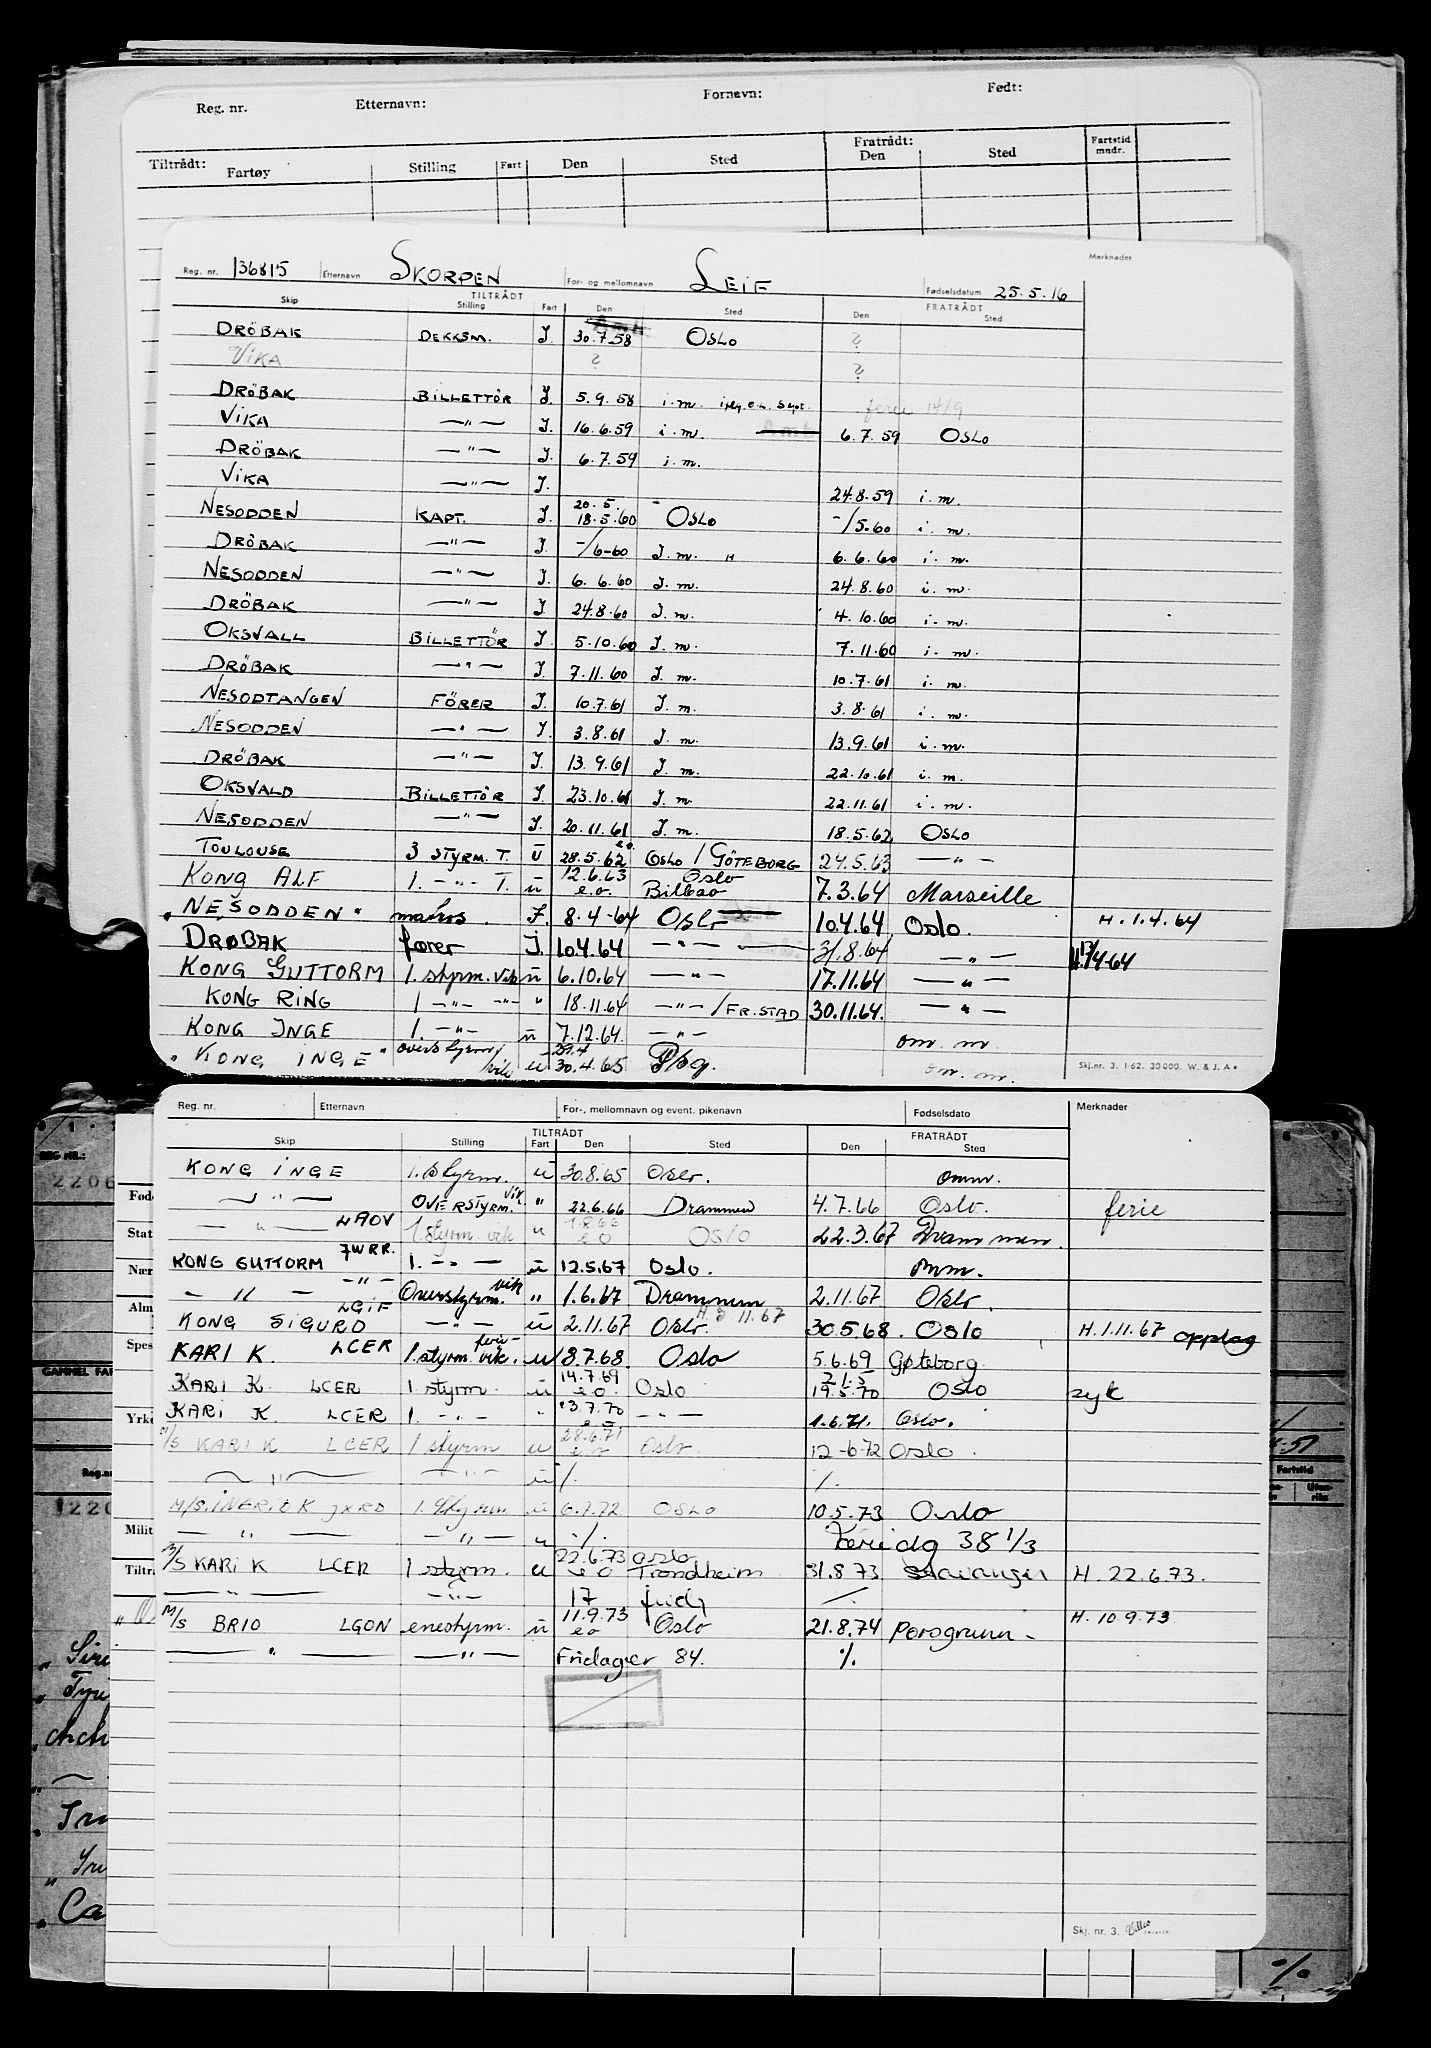 Reg. nr. Etternavn: Fornavn: Født:
Tiltrådt: Fratrådt:
Fartøy Stilling Fart Den Sted Den Sted Fartstid mndr.
Merknader
Reg. nr. 136815 Etternavn SKORPEN For- og mellomnavn LEIF Fødselsdatum 25.5.16
TILTRÅDT FRATRÅDT
Skip Stilling Fart Den Sted Den Sted
DRÖBAK DEKKSM. I. 30.7.58 OSLO ?
VIKA ? ?
DRÖBAK BILLETTÖR I. 5.9.58 i.m. ferie 14/9
VIKA —"— I. 16.6.59 i.m. 6.7.59 OSLO
DRÖBAK —"— I. 6.7.59 i.m.
VIKA —"— I. 24.8.59 i.m.
NESODDEN KAPT. I. 20.5. 18.5.60 OSLO -/5.60 i.m.
DRÖBAK —"— I. -/6-60 I.m. " 6.6.60 i.m.
NESODDEN —"— I. 6.6.60 I.m. 24.8.60 i.m.
DRÖBAK —"— I. 24.8.60 I.m. 4.10.60 i.m.
OKSVALL BILLETTÖR I. 5.10.60 I.m. 7.11.60 i.m.
DRÖBAK —"— I. 7.11.60 I.m. 10.7.61 i.m.
NESODTANGEN FÖRER I. 10.7.61 I.m. 3.8.61 i.m.
NESODDEN —"— I. 3.8.61 I.m. 13.9.61 i.m.
DRÖBAK —"— I. 13.9.61 I.m. 22.10.61 i.m.
OKSVALD BILLETTÖR I. 23.10.61 I.m. 22.11.61 i.m.
NESODDEN —"— I. 20.11.61 I.m. 18.5.62 OSLO
TOULOUSE 3 STYRM. T. u 28.5.62 e.o. OSLO / GÖTEBORG 24.5.63 —"—
KONG ALF 1. —"— T. u 12.6.63 e.o. Oslo Bilbao 7.3.64 Marseille
"NESODDEN" matros. I. 8.4-64 Oslo 10.4.64 Oslo. H.1.4.64
DRØBAK fører I. 10.4.64 —"— 31.8.64 —"— H.13/4-64
KONG GUTTORM 1. styrm. vik u 6.10.64 —"— 17.11.64 —"—
KONG RING 1 —"— —"— " 18.11.64 —"— / FR.STAD 30.11.64. —"—
KONG INGE 1. —"— u 7.12.64. —"— om. m.
"KONG INGE" overstyrm/vik u 29.4 30.4.65 Pbg. om. m.
Skj.nr. 3. 1-62. 30 000. W. & J. A.
Reg. nr. Etternavn For-, mellomnavn og event. pikenavn Fødselsdato Merknader
TILTRÅDT FRATRÅDT
Skip Stilling Fart Den Sted Den Sted
KONG INGE 1. styrm. u 30.8.65 Oslo. omm.
—"— OVERSTYRM. vik. " 22.6.66 Drammen 4.7.66 Oslo. ferie
—"— LAOV 1 styrm. vik u 1.8.66 e o Oslo 22.3.67 Drammen.
KONG GUTTORM JWRR. 1. —"— u 12.5.67 Oslo. omm.
—"— —"— Overstyrm. vik " 1.6.67 Drammen 2.11.67 Oslo.
KONG SIGURD LGIF —"— u 2.11.67 Oslo. H. 3 11.67 30.5.68. Oslo H.1.11.67 opplag
KARI K. LCER 1 styrm. ferie-vik. u 8.7.68. Oslo 5.6.69 Gøteborg
KARI K. LCER 1 styrm. u 14.7.69 e o. Oslo 21.5 19.5.70 Oslo syk
KARI K. LCER 1. —"— " 3.7.70 e o —"— 1.6.71. Oslo.
M/S KARI K LCER 1 styrm u 28.6.71 e o Oslo. 12-6-72 Oslo.
—"— —"— u ./. ./.
M/S. INGRID K JXRD 1. styrm u 6.7.72 OSLO 10.5.73 Oslo
—"— —"— u ./. Feriedg 38 1/3
M/S KARI K LCER 1 styrm. u 22.6.73 e o Oslo Trondheim 31.8.73 Stavanger H. 22.6.73.
—"— —"— 17 fridg ./.
M/S BRIO LGON enestyrm. u 11.9.73 e o Oslo 21.8.74 Porsgrunn. H. 10 9.73
—"— —"— Fridager 84. ./.
Skj. nr. 3.